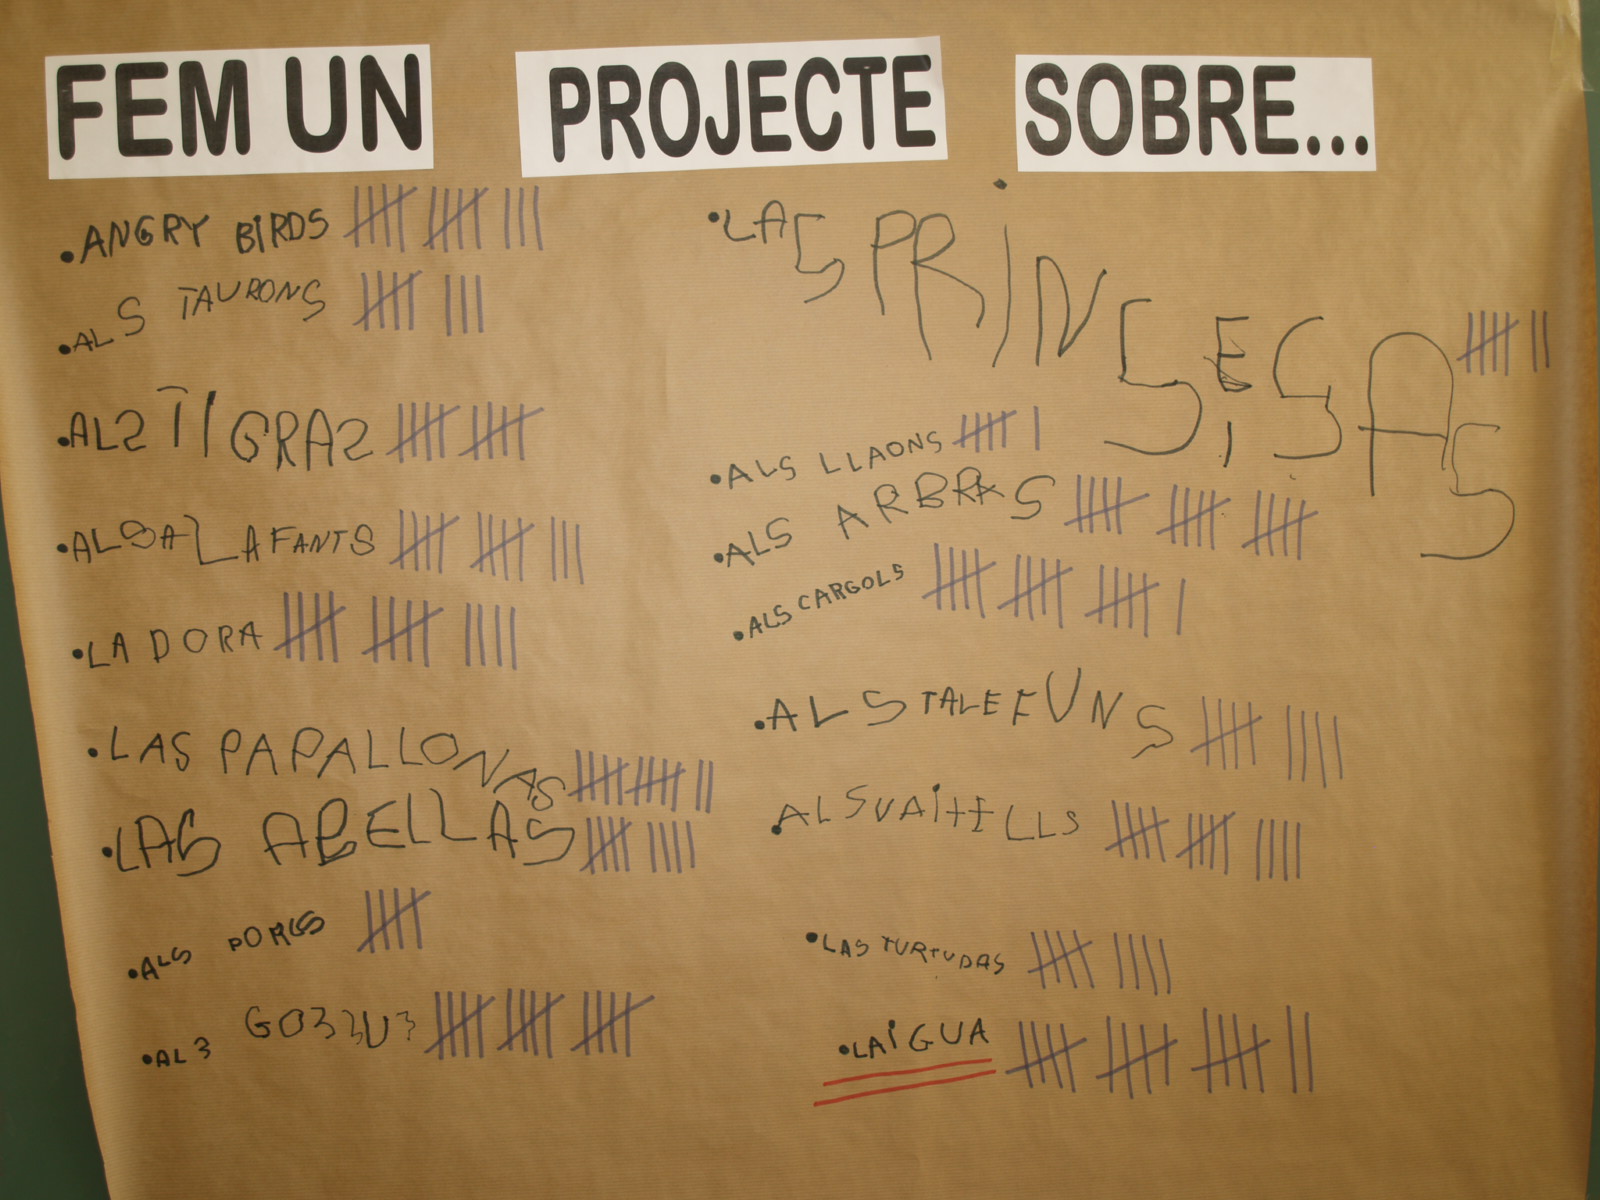 FEM UN PROJECTE SOBRE...
•ANGRY BIRDS
•ALS TAURONS
•ALS TIGRAS
•ALSALAFANTS
•LA DORA
•LAS PAPALLONAS
•LAS ABELLAS
•ALS PORCS
•ALS GOSSUS
•LAS PRINSESAS
•ALS LLAONS
•ALS ARBRAS
•ALS CARGOLS
•ALS TALEFUNS
•LAS TURTUDAS
•LAIGUA